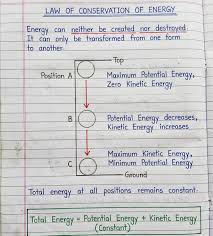 LAW OF CONSERVATION OF ENERGY
Energy can neither be created nor destroyed.
It can only be transformed from one form
to another
Top
Position A
Maximum Potential Energy,
Zero Kinetic Energy
B
Potential Energy decreases,
Kinetic Energy increases
C
Maximum Kinetic Energy,
Minimum Potential Energy
Ground
Total energy at all positions remains constant.
Total Energy = Potential Energy + Kinetic Energy
(Constant)